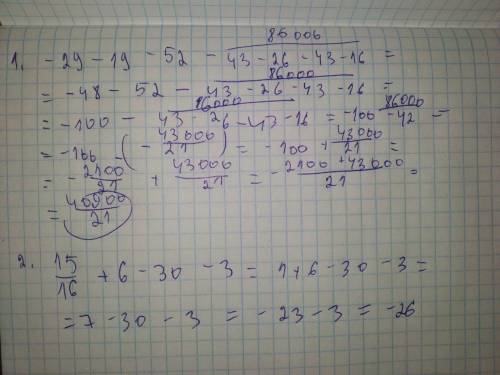 86000
1. -29 - 19 - 52 - 43 - 26 - 43 - 16 =
86000
= -48 - 52 - 43 - 26 - 43 - 16 =
86000
= -100 - 43 - 26 - 43 - 16 = -100 - 86000/-42 =
= -100 - (-43000/21) = -100 + 43000/21 =
= -2100/21 + 43000/21 = -2100 + 43000/21 =
= 40900/21
2. 15/16 + 6 - 30 - 3 = 1 + 6 - 30 - 3 =
= 7 - 30 - 3 = -23 - 3 = -26